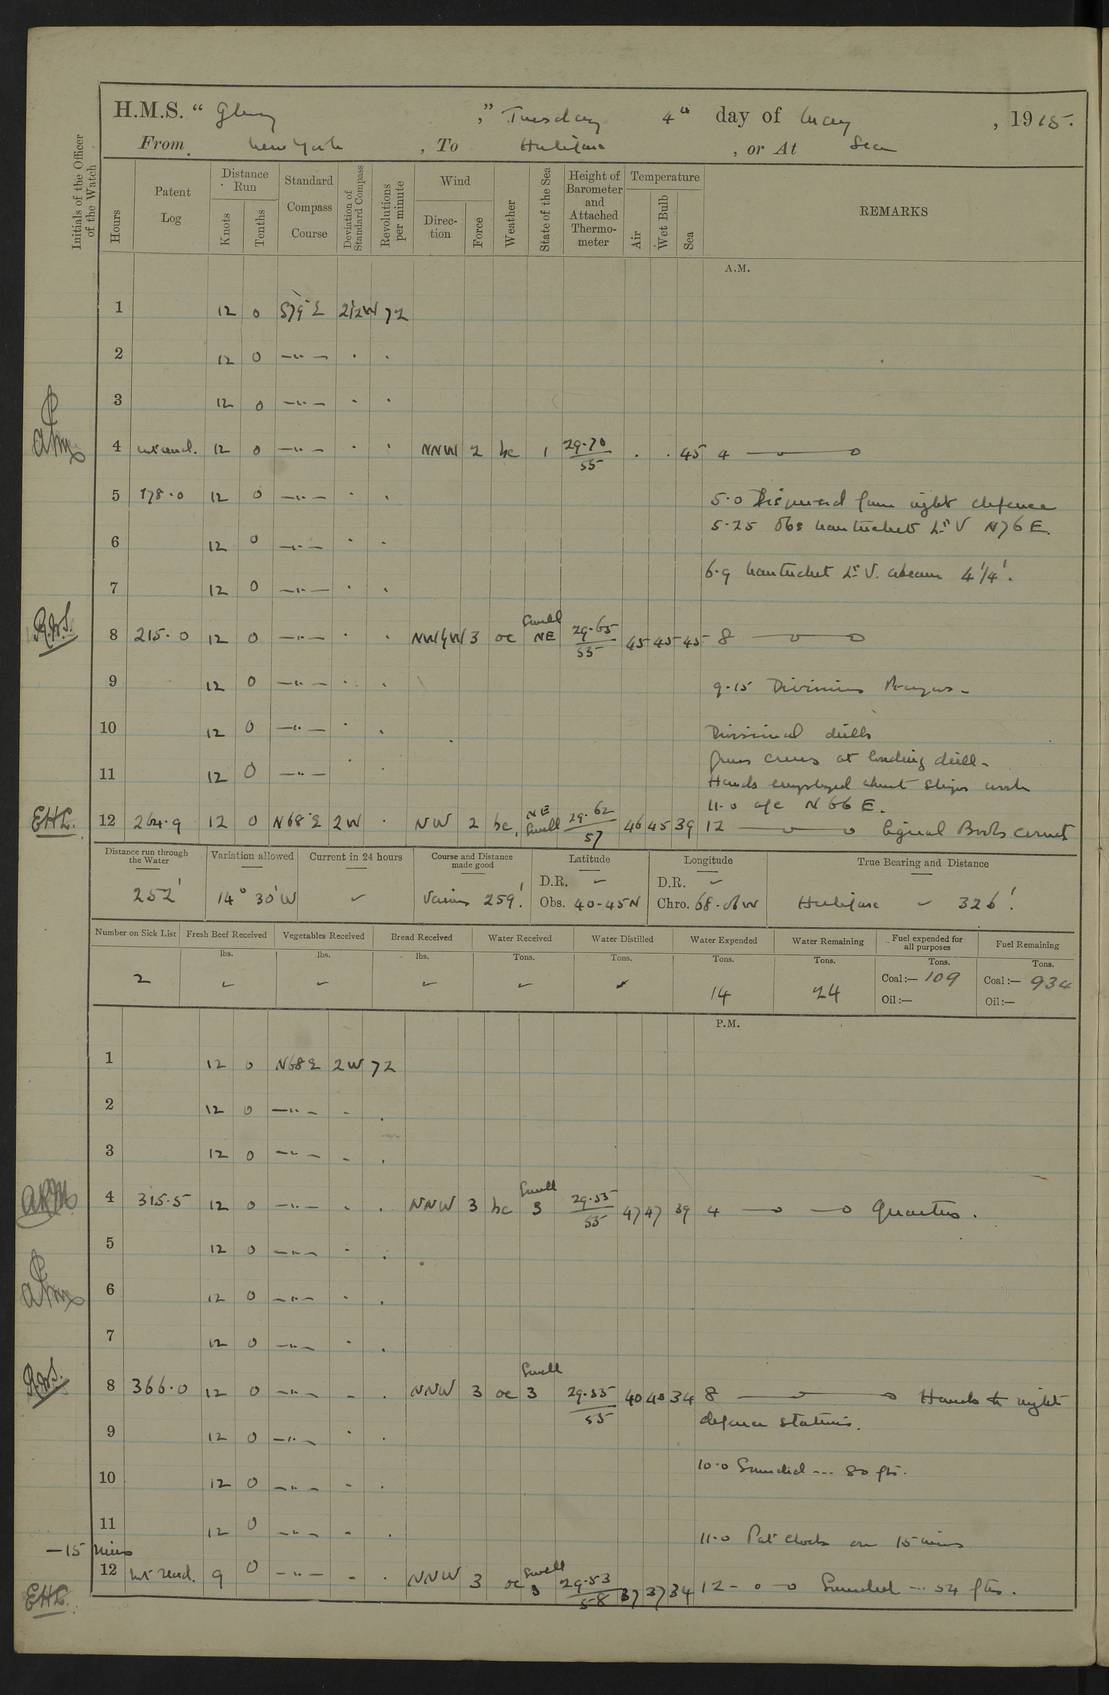 H.M.S. " Glory ," Tuesday 4th day of May , 1915.
From New York , To Halifax , or At Sea
Initials of the Officer of the Watch
Hours
Patent Log
Distance Run
Knots
Tenths
Standard Compass Course
Deviation of Standard Compass
Revolutions per minute
Wind
Direction
Force
Weather
State of the Sea
Height of Barometer and Attached Thermometer
Temperature
Air
Wet Bulb
Sea
REMARKS
A.M.
1 12 0 S79°E 2½W 72
2 12 0 —"— . .
3 12 0 —"— . .
4 12 0 —"— . . NNW 2 bc 1 29.70/55 . . 45 4
5 178.0 12 0 —"— . . 5.0 Dispersed from night defence
5.25 Obs Nantucket Lt V N76E
6 12 0 —"— . .
6.9 Nantucket Lt V. abeam 4¼'.
7 12 0 —"— . .
R.W.S. 8 215.0 12 0 —"— . . NWbyW 3 oc Swell NE 29.65/55 45 45 45 8
9 12 0 —"— . . 9.15 Divisions Prayers -
10 12 0 —"— . . Divisional drills
Guns crews at loading drill -
11 12 0 —"— . . Hands employed about ships work
11.0 a/c N 66 E.
EHL. 12 264.9 12 0 N68°E 2W . NW 2 bc, NE Swell 29.62/57 46 45 39 12 Signal Books correct
Distance run through the Water
Variation allowed
Current in 24 hours
Course and Distance made good
Latitude
Longitude
True Bearing and Distance
252' 14° 30'W ~ Various 259.' D.R. ~ D.R. ~ Halifax ~ 326'.
Obs. 40-45N Chro. 68-01W
Number on Sick List
Fresh Beef Received lbs.
Vegetables Received lbs.
Bread Received lbs.
Water Received Tons.
Water Distilled Tons.
Water Expended Tons.
Water Remaining Tons.
Fuel expended for all purposes Tons.
Fuel Remaining Tons.
2 ~ ~ ~ ~ ~ 14 24 Coal:— 109 Coal:— 934
Oil:— Oil:—
P.M.
1 12 0 N68E 2W 72
2 12 0 —"— - .
3 12 0 —"— - .
ARM 4 315.5 12 0 —"— . . NNW 3 bc Swell 3 29.55/55 47 47 39 4 Quarters.
5 12 0 —"— - .
6 12 0 —"— . .
7 12 0 —"— . .
R.W.S. 8 366.0 12 0 —"— - . NNW 3 oc Swell 3 29.55/55 40 40 34 8 Hands to night
defence stations.
9 12 0 —"— . .
10.0 Sounded --- 80 fts.
10 12 0 —"— - .
11 12 0 —"— - . 11.0 Put clocks on 15 mins
—15 mins
EHL. 12 Not read. 9 0 —"— - . NNW 3 oc Swell 3 29.53/58 37 37 34 12 Sounded --- 54 fts.